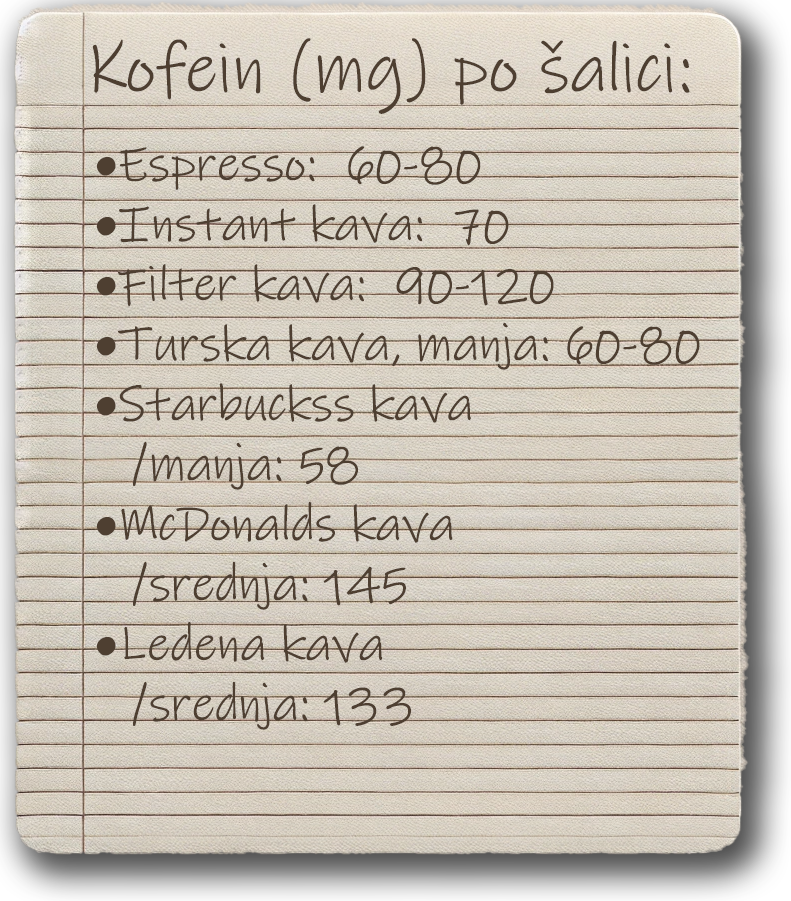 Kofein (mg) po šalici:
•Espresso: 60-80
•Instant kava: 70
•Filter kava: 90-120
•Turska kava, manja: 60-80
•Starbuckss kava
/manja: 58
•McDonalds kava
/srednja: 145
•Ledena kava
/srednja: 133